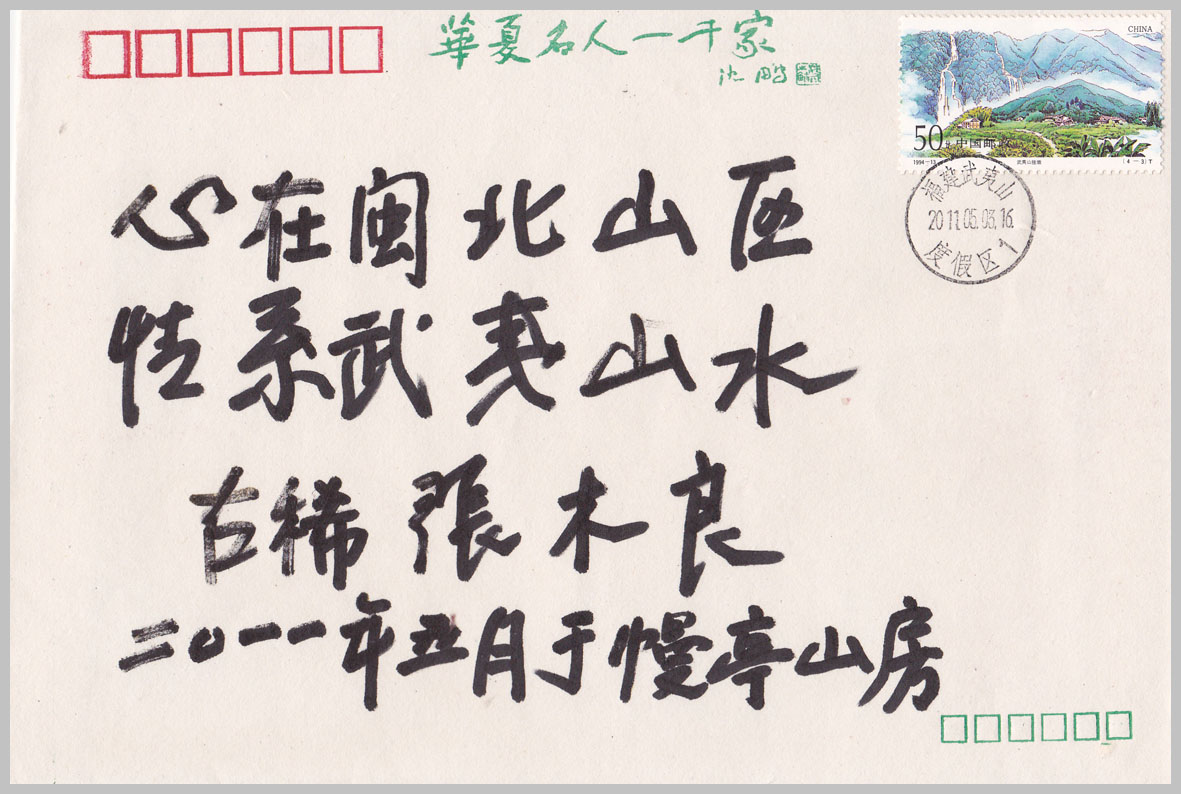 華夏名人一千家
沈鹏
CHINA
50分 中国邮政
1994-13
武夷山挂墩
(4-3)T
福建武夷山
2011.05.03.16
度假区1
心在闽北山区
情系武夷山水
古稀 張木良
二〇一一年五月于幔亭山房